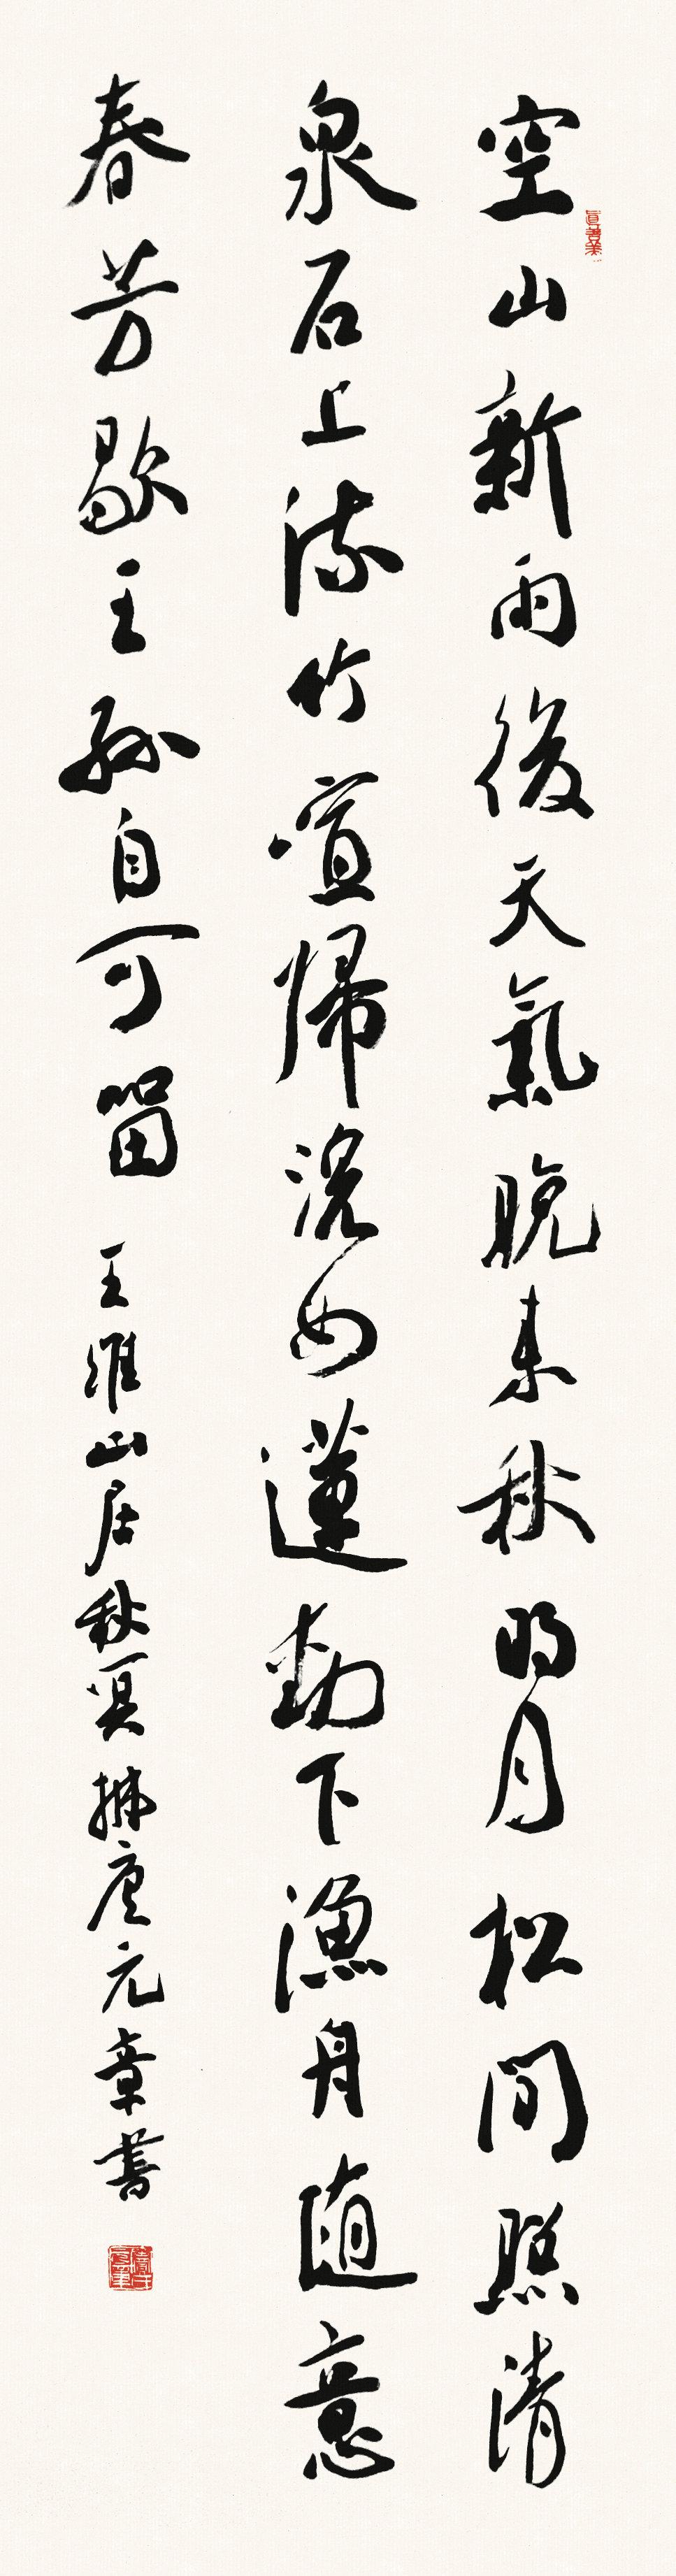 真善美
空山新雨後天氣晚来秋明月松間照清
泉石上流竹喧帰浣女蓮動下漁舟随意
春芳歇王孫自可留 王維山居秋冥 元章書